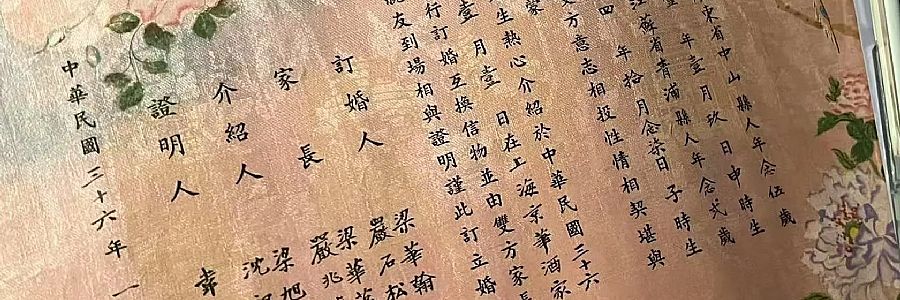 東省中山縣人年念伍歲
年壹月玖日申時生
江蘇省青浦縣人年念弍歲
四年拾月念柒日子時生
方意志相投性情相契堪與
生熱心介紹於中華民國三十六
壹月壹日在上海京華酒家
行訂婚互換信物並由雙方家長
親友到場相與證明謹此訂立婚
訂婚人 梁華翰 嚴石松
家長 梁華 嚴兆
介紹人 梁旭 沈
證明人
中華民國三十六年一